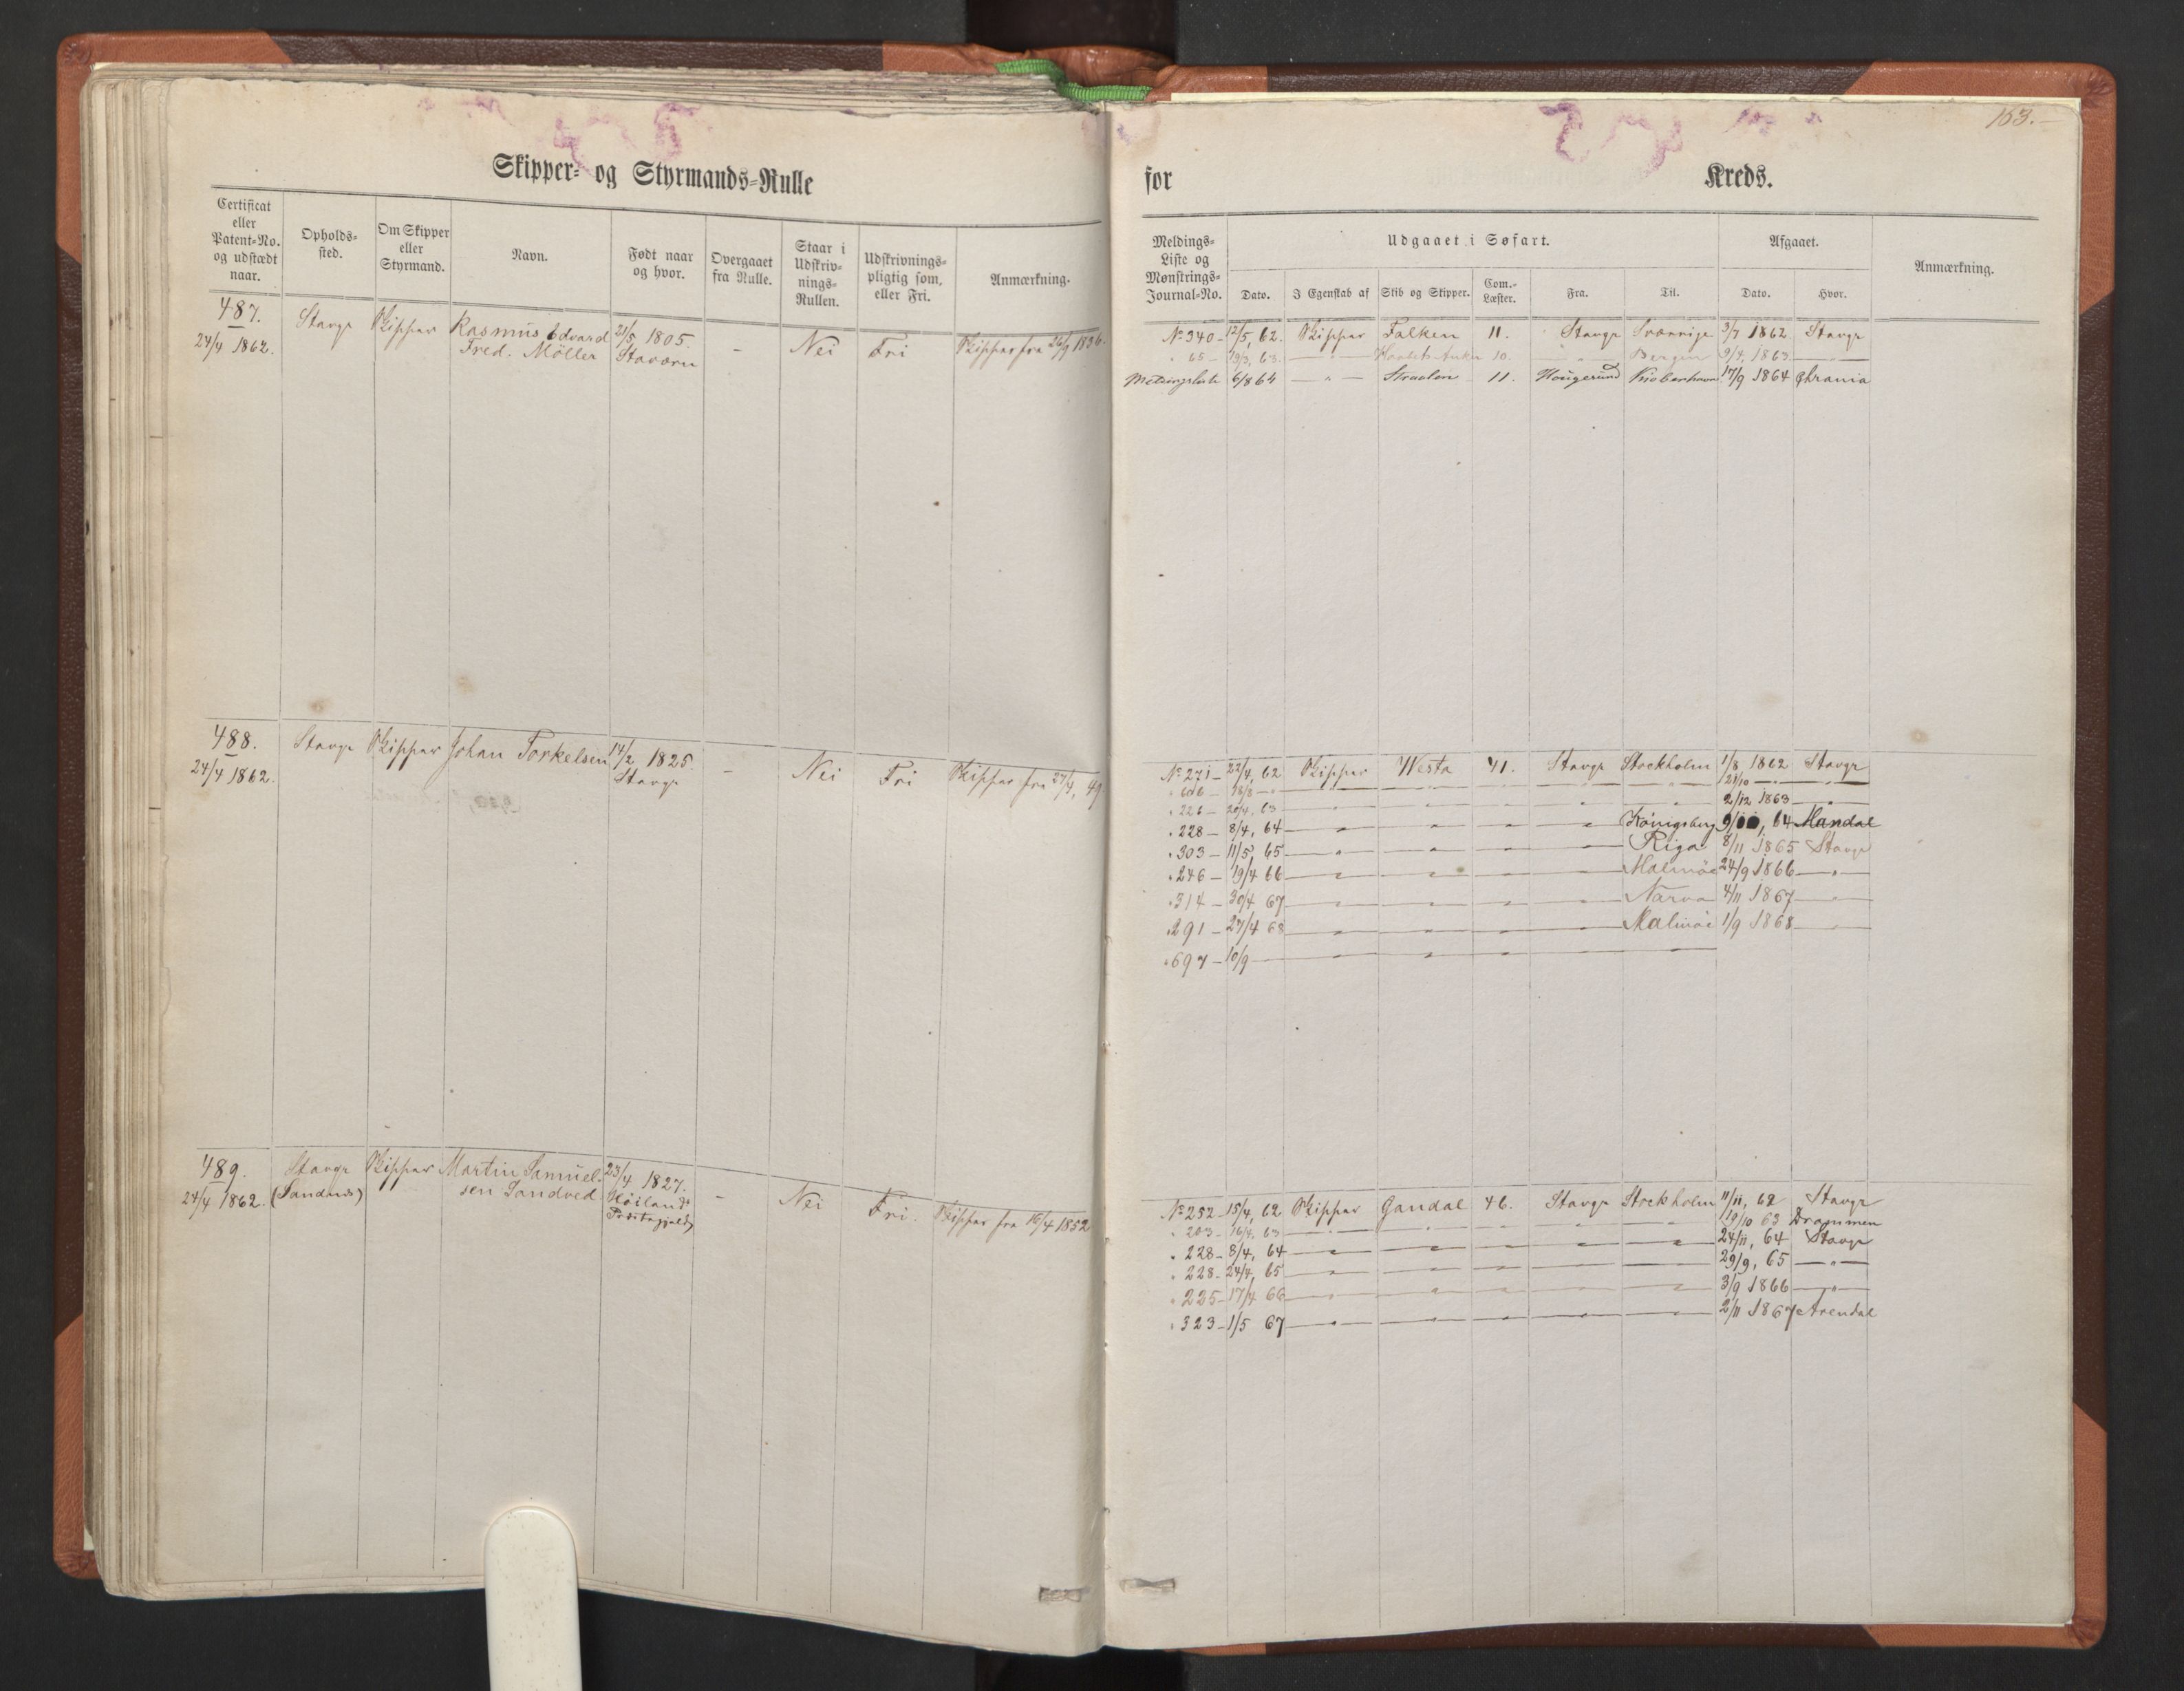 163.—
Skipper- og Styrmands-Rulle
for Kreds.
Certificat eller Patent-No. og udstædt naar.
Opholds-sted.
Om Skipper eller Styrmand.
Navn.
Født naar og hvor.
Overgaaet fra Rulle.
Staar i Udskriv-nings-Rullen.
Udskrivnings-pligtig som, eller Fri.
Anmærkning.
Meldings-Liste og Mønstrings-Journal-No.
Udgaaet i Søfart.
Dato.
I Egenskab af
Skib og Skipper.
Com.-Læster.
Fra.
Til.
Afgaaet.
Dato.
Hvor.
Anmærkning.
487. Stavgr Skipper Rasmus Edvard 21/5 1805. – Nei Fri Skipper fra 26/9 1836.
24/4 1862. Fred. Möller Staværn
№ 340 – 12/5, 62. Skipper Falken 11. Stavgr Sværrige 3/7 1862. Stavgr
" 65 – 19/3, 63. — " — 10. " Bergen 9/4, 1863. — " —
Meldingsliste 6/8 64 — " — Straalen 11. Hougesund Kiøbenhavn 17/9 1864 Chrania
488. Stavgr Skipper Johan Torkelsen 14/2 1825. – Nei Fri Skipper fra 27/4, 49.
24/4 1862. Stavgr
№ 271 – 22/4, 62 Skipper Westa 41. Stavgr Stockholm 1/8 1862 Stavgr
" 606 – 18/8 — " — " — " — " — " — " 21/10 — " — "
" 226 – 20/4, 63 — " — " — " — " — " 2/12 1863 — "
" 228 – 8/4, 64 — " — " — " — " Königsberg , 64 Mandal
" 303 – 11/5, 65 — " — " — " — " Riga 8/11 1865 Stavgr
" 246 – 19/4 66 — " — " — " — " Malmöe 24/9 1866 — "
" 314 – 30/4 67 — " — " — " — " Narva 4/11 1867 — "
" 291 – 27/4 68 — " — " — " — " Malmöe 1/9 1868 — "
" 697 – 10/9 — " — " — " — " —
489. Stavgr Skipper Martin Samuel- 23/4 1827. – Nei Fri. Skipper fra 16/4 1852
24/4 1862. (Sandnæs) sen Sandved Høilands
Præstegjeld
№ 252 – 15/4, 62 Skipper Gandal 46. Stavgr Stockholm 11/11, 62 Stavgr
" 203 – 16/4, 63 — " — " — " — " — " 19/10 63 Drammen
" 228 – 8/4, 64 — " — " — " — " — " 24/11, 64 Stavgr
" 228 – 24/4, 65 — " — " — " — " — " 29/9, 65 — " —
" 235 – 17/4 66 — " — " — " — " — " 3/9 1866 — " —
" 323 – 1/5 67 — " — " — " — " — " 2/11 1867 Arendal